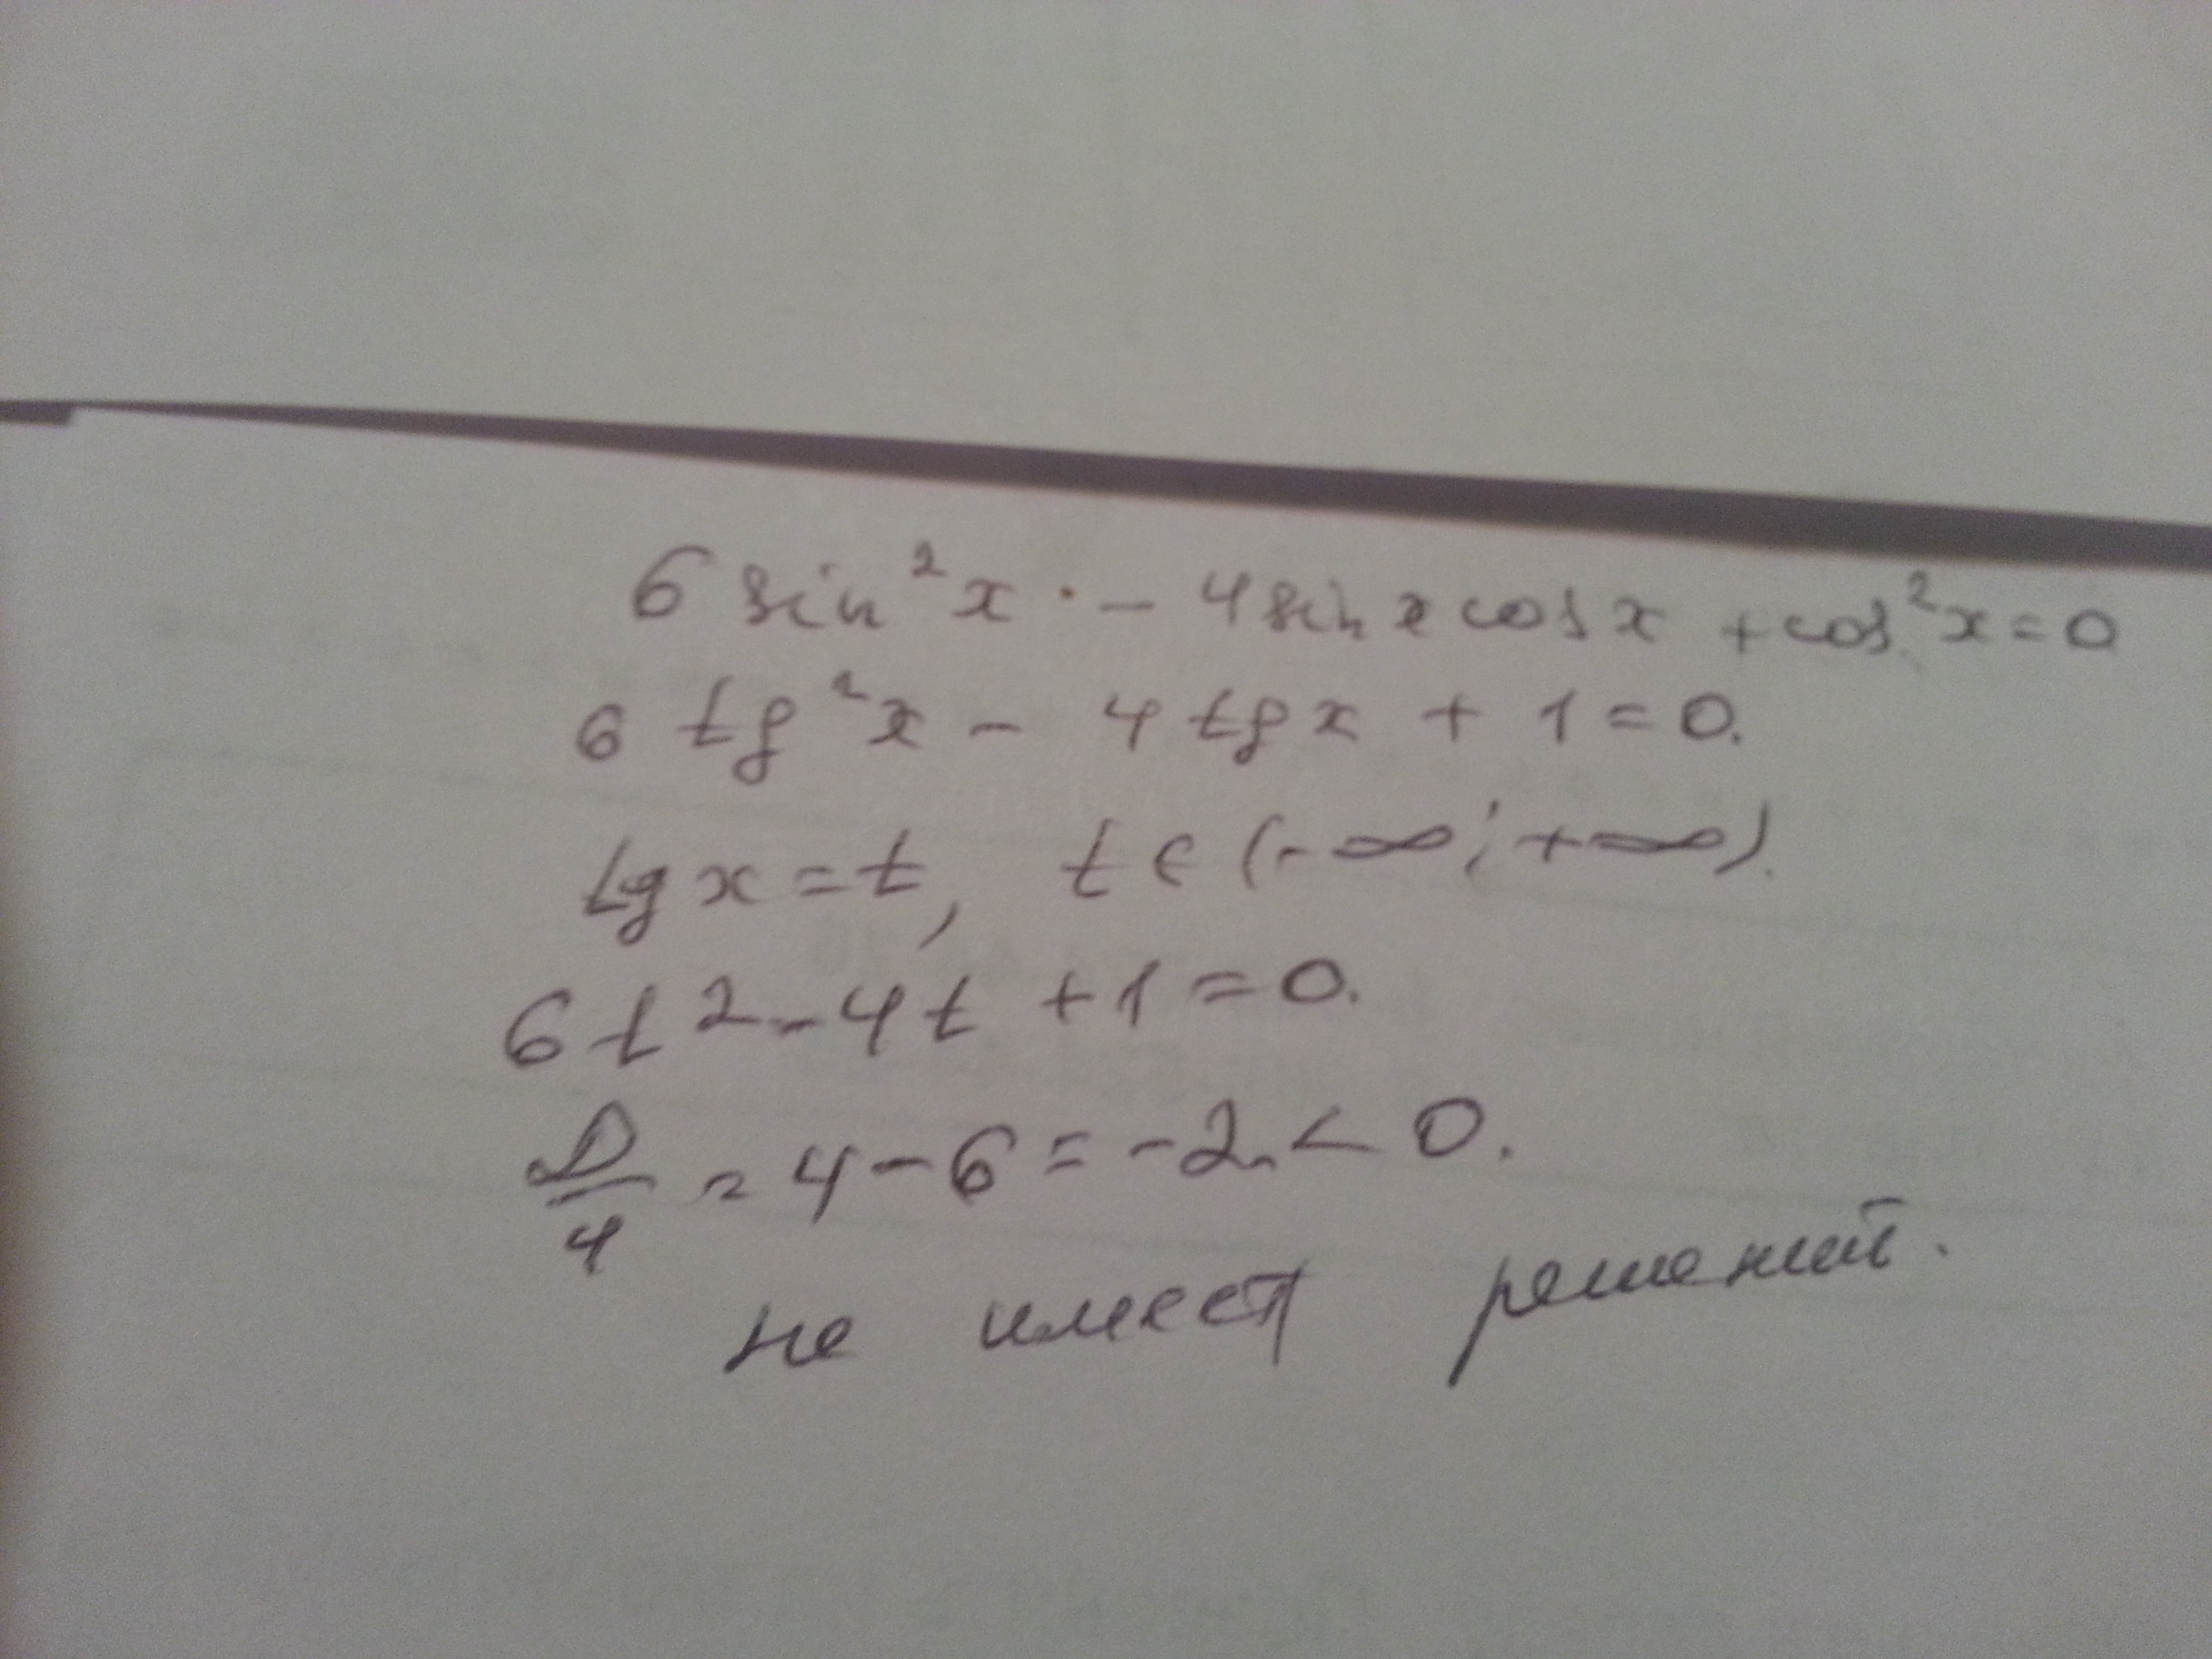 6 sin²x · - 4 sin x cos x + cos²x = 0
6 tg²x - 4 tg x + 1 = 0.
tg x = t, t ∈ (-∞; +∞).
6t² - 4t + 1 = 0.
D/4 = 4 - 6 = -2 < 0.
не имеет решений.